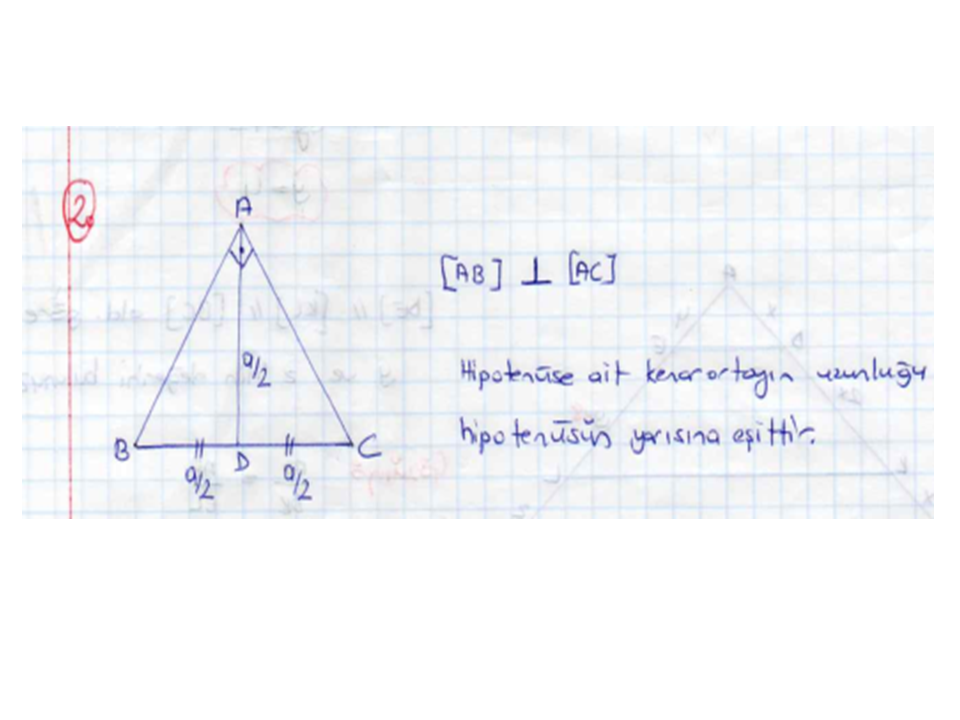 2.
A
[AB] ⊥ [AC]
a/2
Hipotenüse ait kenarortayın uzunluğu
hipotenüsün yarısına eşittir.
B D C
a/2 a/2